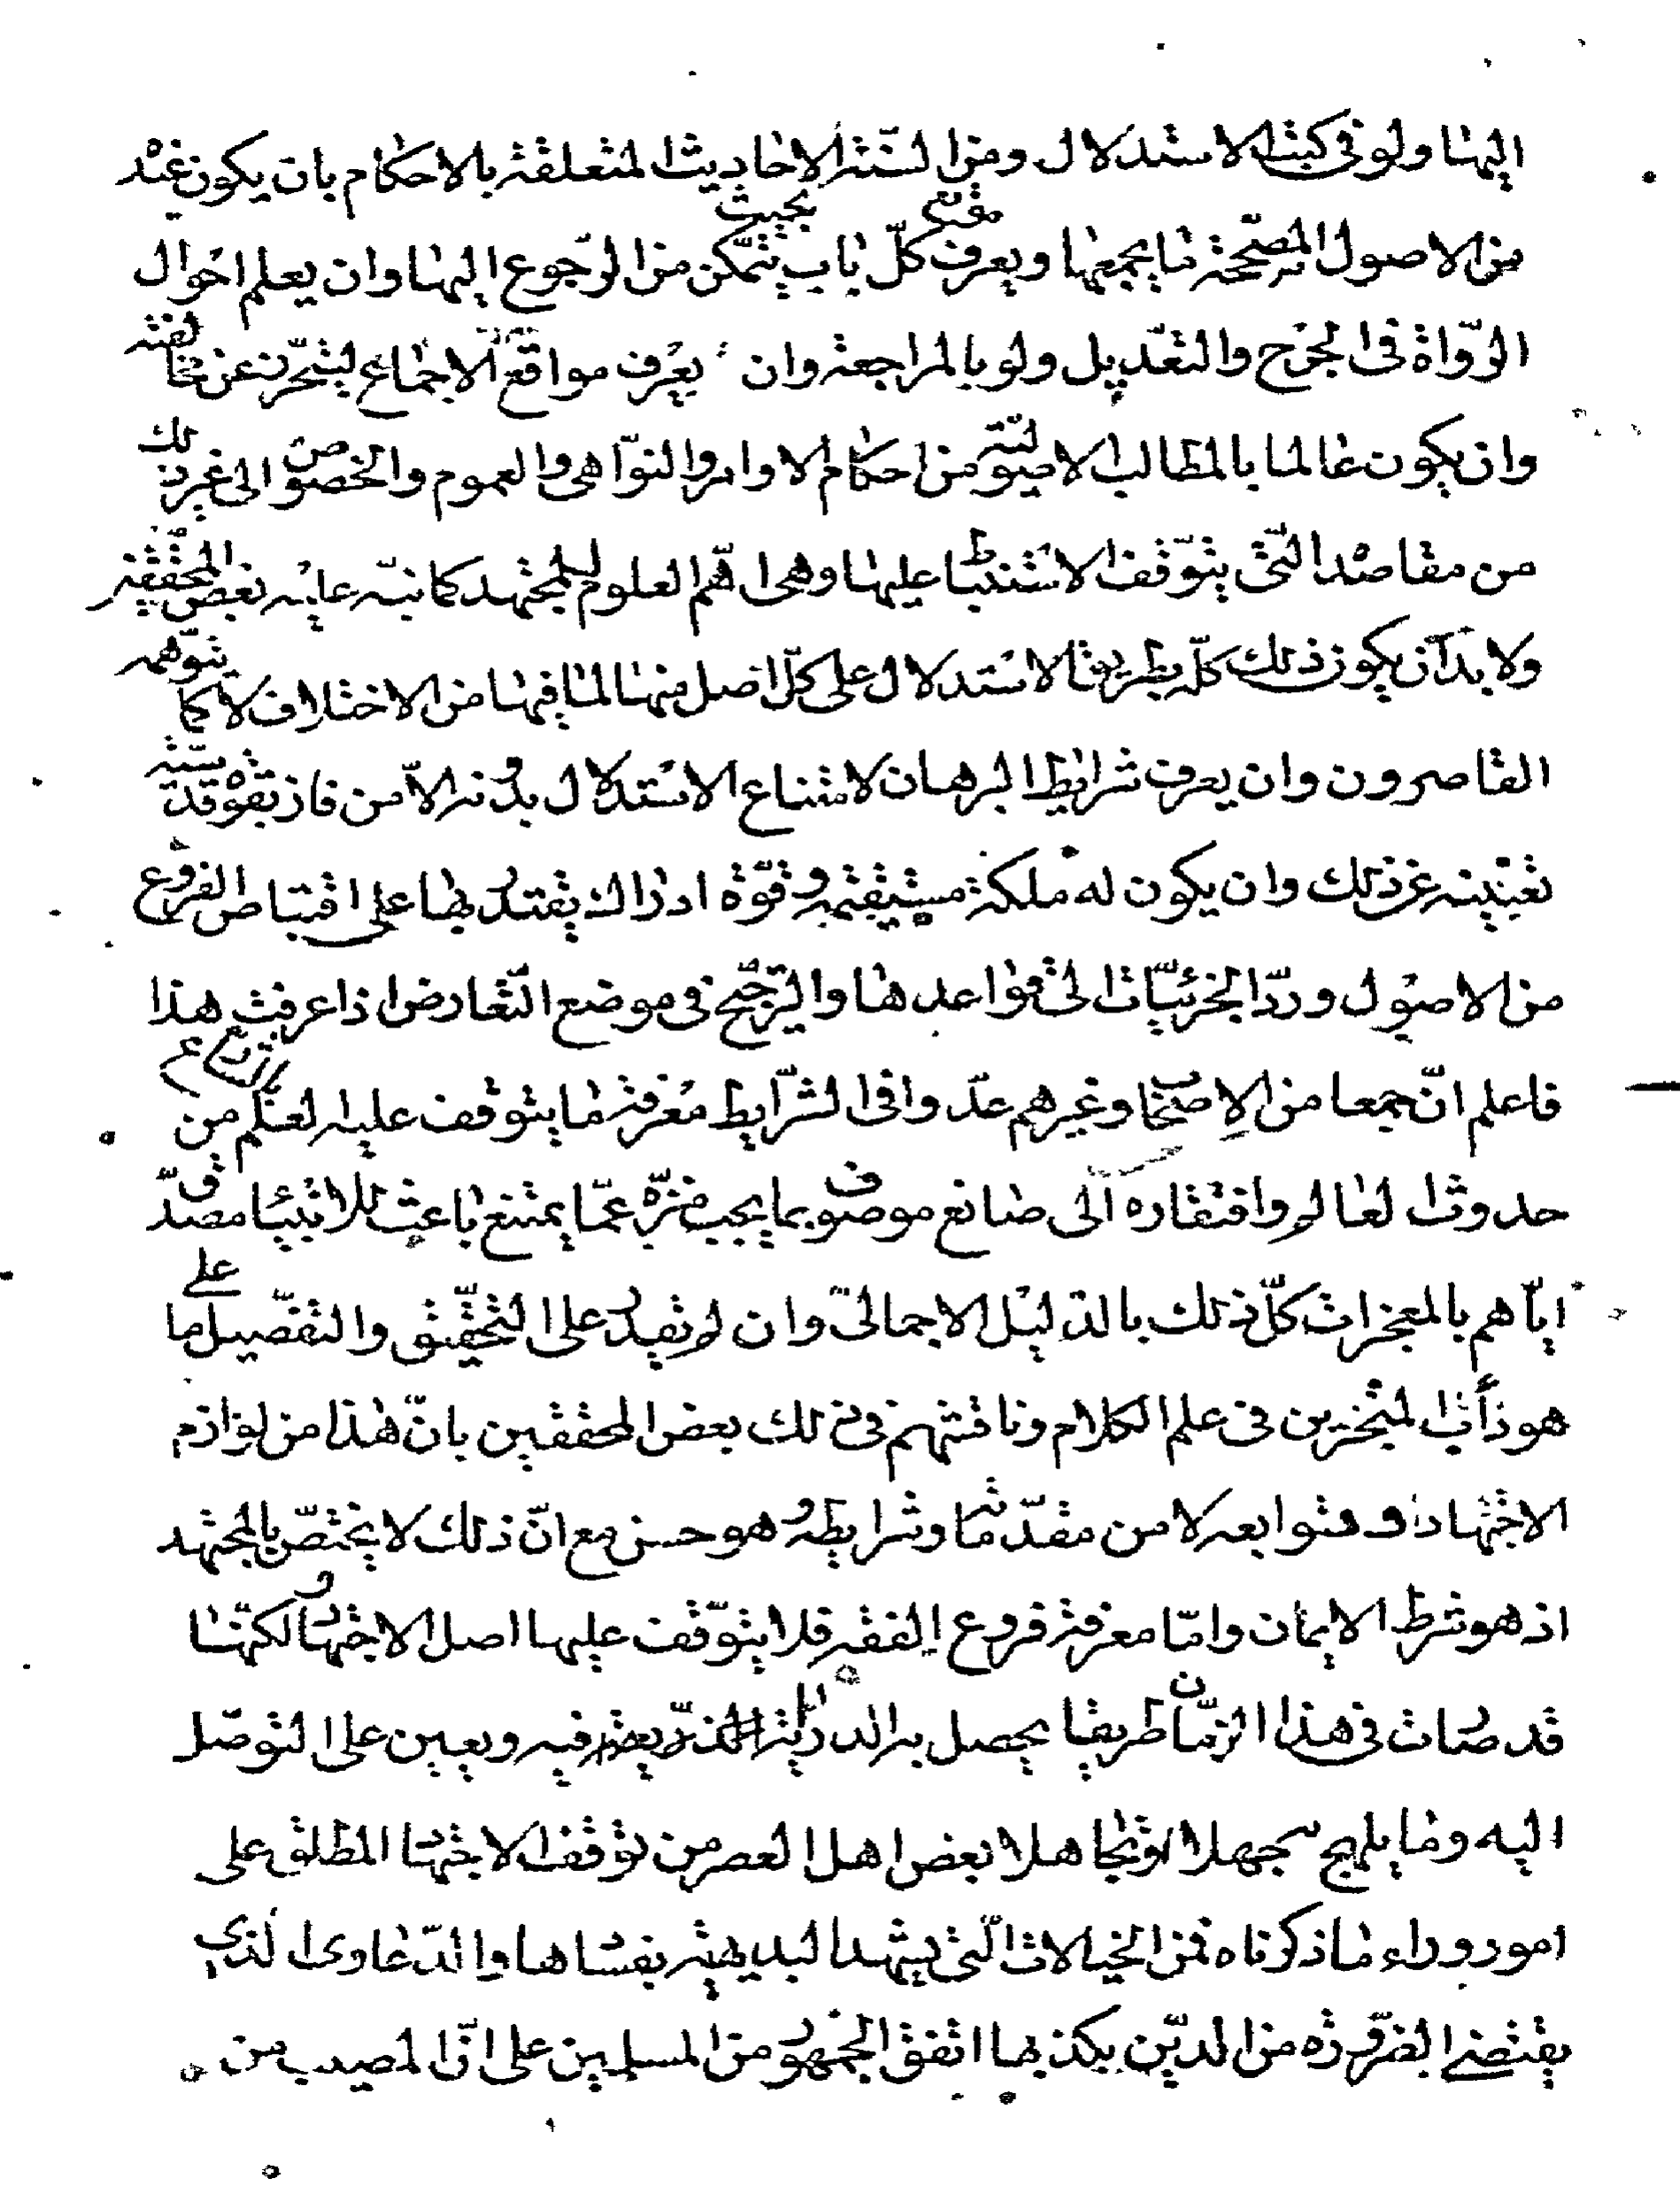 اليها ولو في كتب الاستدلال ومن السنة الاحاديث المتعلقة بالاحكام بان يكون عنده
من الاصول المصححة ما يجمعها ويعرف موقع كل باب بحيث يتمكن من الرجوع اليها وان يعلم احوال
الرواة في الجرح والتعديل ولو بالمراجعة وان يعرف مواقع الاجماع ليتحرز عن مخالفته
وان يكون عالما بالمطالب الاصولية من احكام الاوامر والنواهي والعموم والخصوص الى غير ذلك
من مقاصده التي يتوقف الاستنباط عليها وهي اهم العلوم للمجتهد كما نبه عليه بعض المحققين
ولا بد ان يكون ذلك كله بطريق الاستدلال على كل اصل منها لما فيها من الاختلاف لا كما يتوهمه
القاصرون وان يعرف شرايط البرهان لامتناع الاستدلال بدونه الا من فاز بقوة قدسية
تغنيه عن ذلك وان يكون له ملكة مستقيمة وقوة ادراك يقتدر بها على اقتناص الفروع
من الاصول ورد الجزئيات الى قواعدها والترجيح في موضع التعارض اذا عرفت هذا
فاعلم ان جمعا من الاصحاب وغيرهم عدوا في الشرايط معرفة ما يتوقف عليه العلم بالشارع من
حدوث العالم وافتقاره الى صانع موصوف بما يجب منزه عما يمتنع باعث للانبياء مصدق
اياهم بالمعجزات كل ذلك بالدليل الاجمالي وان لم يقدر على التحقيق والتفصيل على ما
هو دأب المتبحرين في علم الكلام وناقشهم في ذلك بعض المحققين بان هذا من لوازم
الاجتهاد وتوابعه لا من مقدماته وشرايطه وهو حسن مع ان ذلك لا يختص بالمجتهد
اذ هو شرط الايمان واما معرفة فروع الفقه فلا يتوقف عليها اصل الاجتهاد ولكنها
قد صارت في هذا الزمان طريقا يحصل به الدربة فيه ويعين على التوصل
اليه وما يلهج به جهلا او تجاهلا بعض اهل العصر من توقف الاجتهاد المطلق على
امور وراء ما ذكرناه فمن الخيالات التي يشهد البديهة بفسادها والدعاوى الذي
يقتضي الضرورة من الدين بكذبها اتفق الجمهور من المسلمين على ان المصيب من